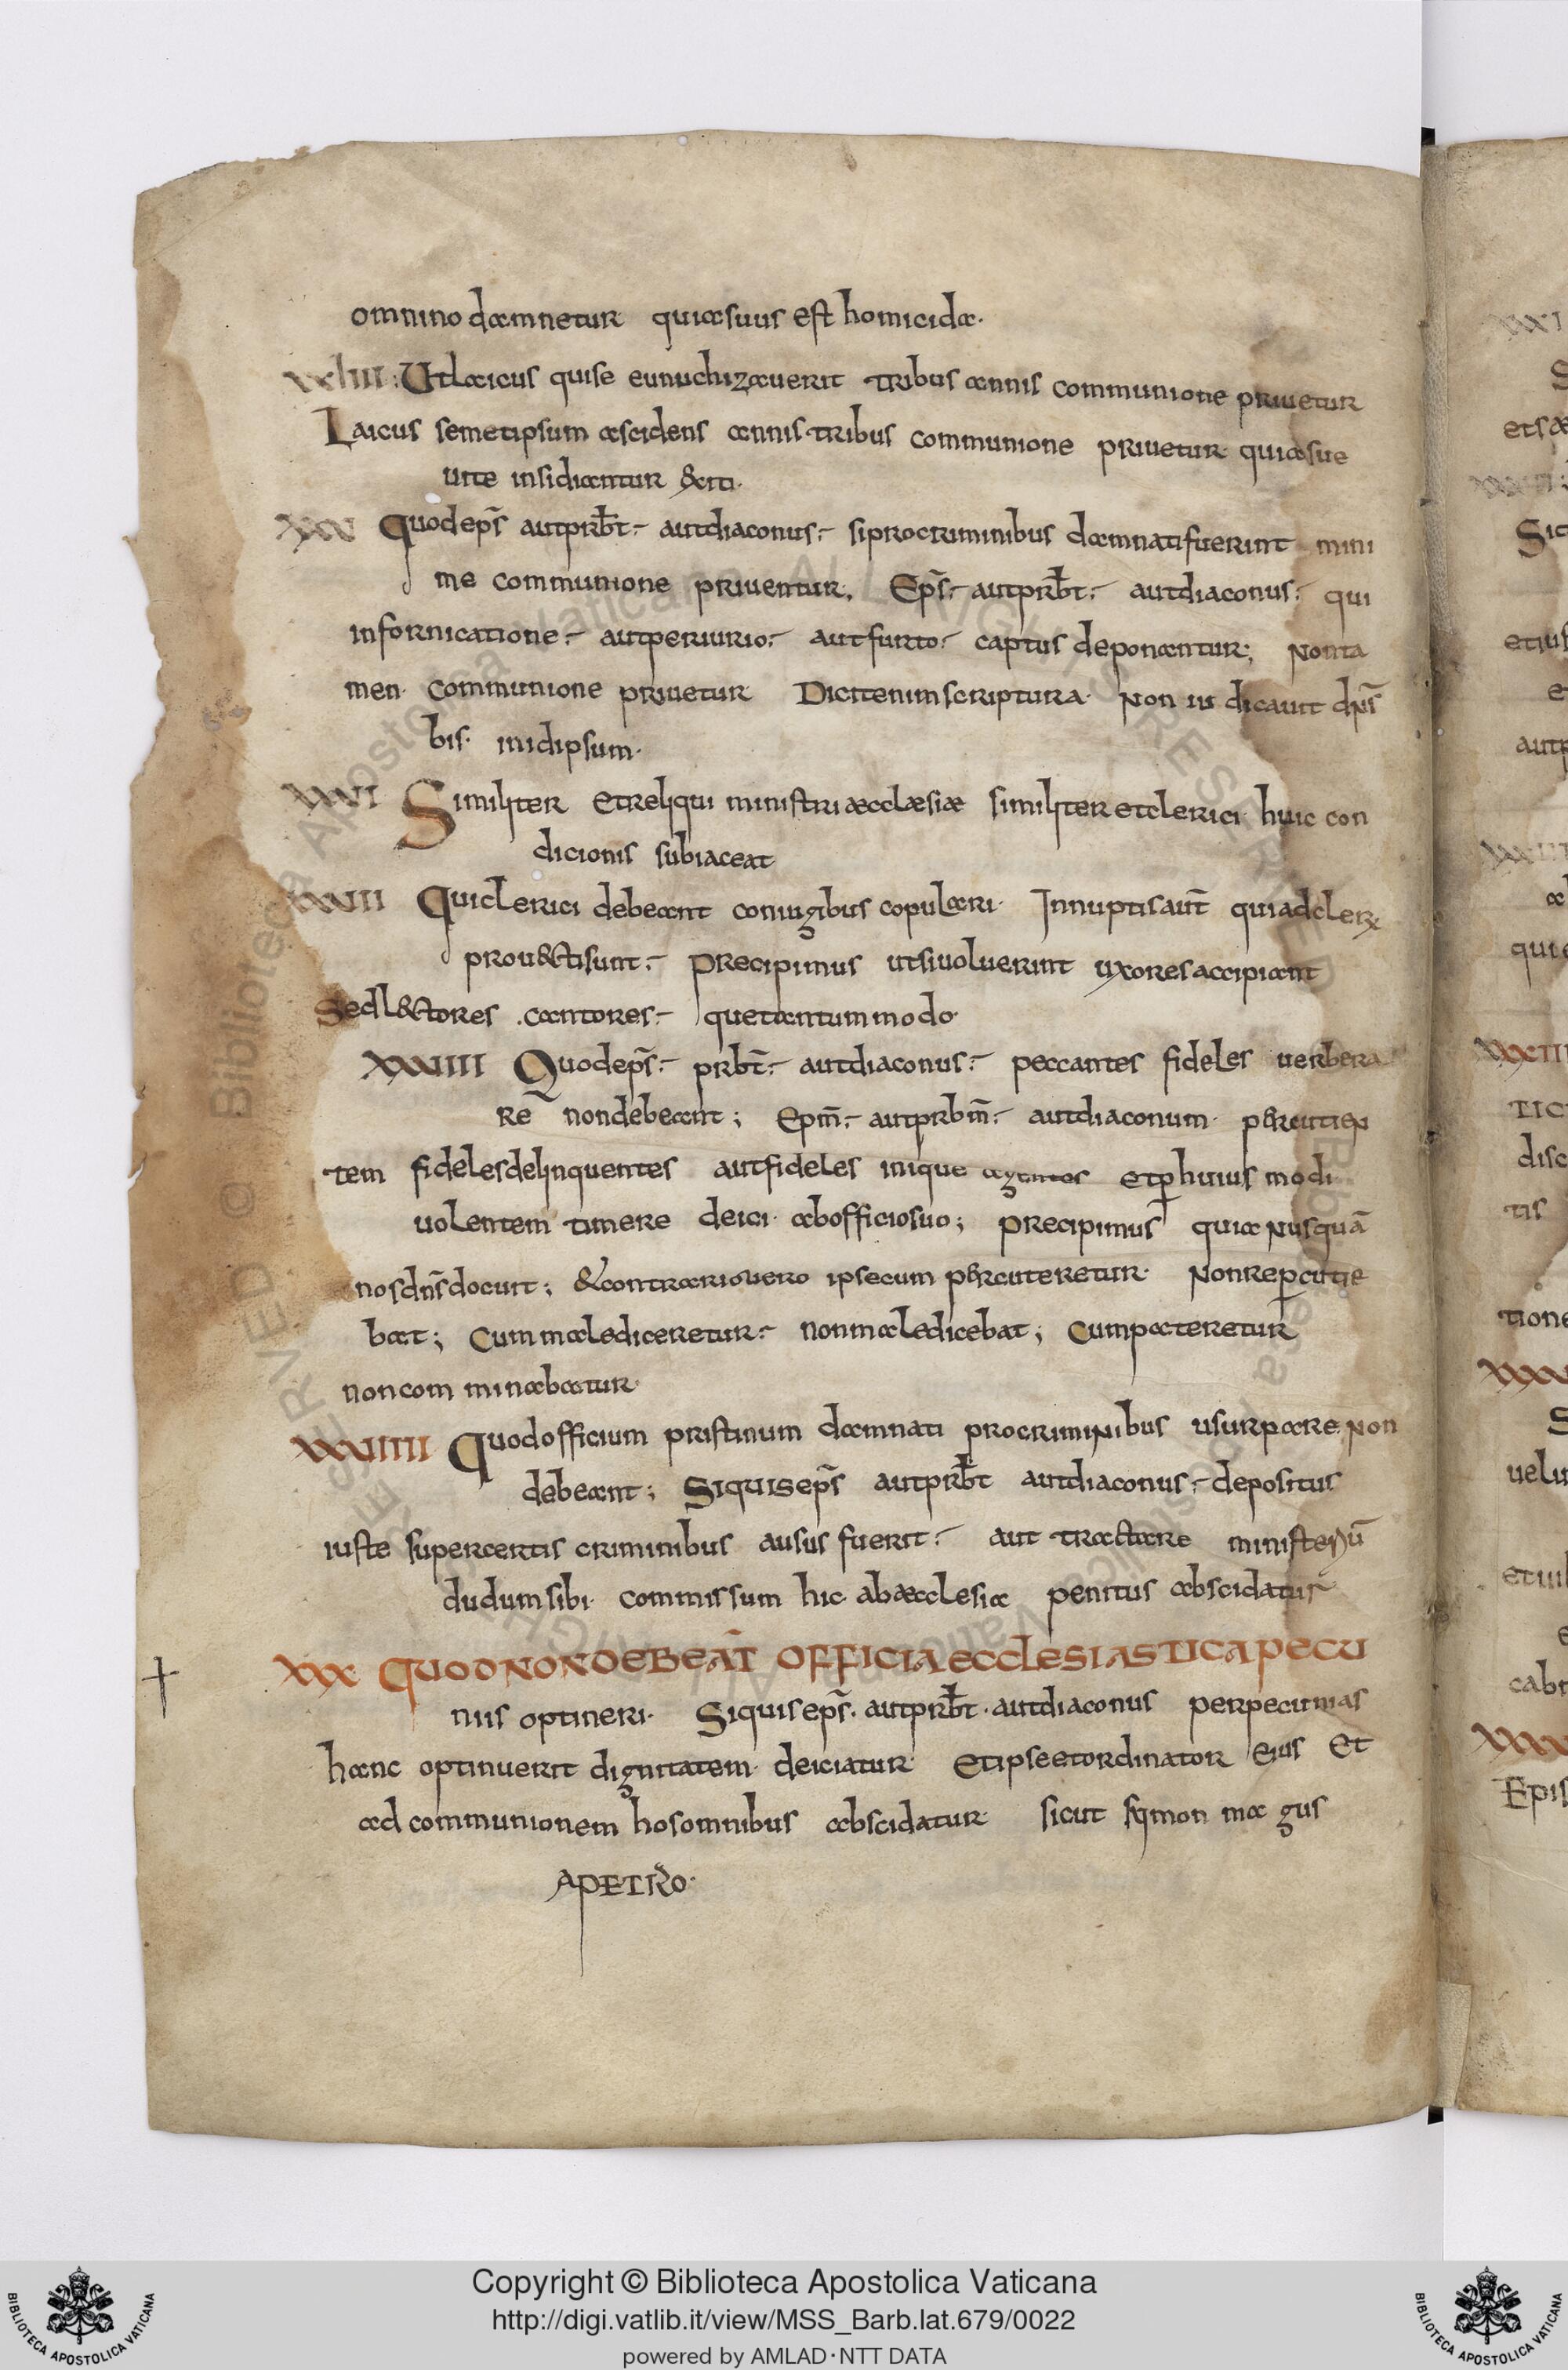 omnino damnetur quia suus est homicida·
xxiiii: Ut laicus qui se eunuchizauerit tribus annis communione priuetur
Laicus semetipsum abscidens annis tribus communione priuetur quia sue
uite insidiantur &
xxv Quod eps̄ aut prbt̄ aut diaconus si pro criminibus damnati fuerint mini
me communione priuentur. Eps̄ aut prbt̄ aut diaconus qui
in fornicatione aut periurio aut furto captus deponantur; Non ta
men communione priuetur Dicit enim scriptura· Non iudicauit dns̄
bis· in id ipsum·
xxvi Similiter et reliqui ministri aecclaesiae similiter et clerici huic con
dicionis subiaceat
xxvii Qui clerici debeant coniugibus copulari· Innuptis aut̄ qui ad cler
prouecti sunt Precipimus ut si uoluerint uxores accipiant
Sed l&ctores cantores que tantum modo·
xxviii Quod eps̄ prbt̄ aut diaconus peccantes fideles uerbera
re non debeant; Epm̄ aut prbm̄ aut diaconum percutien
tem fideles delinquentes aut fideles inique agentes et p̱ huius modi
uolentem timere deici ab officio suo; Precipimus quia nusquā
nos dns̄ docuit; & contrario uero ipse cum percuteretur· Non rep̱cutie
bat; Cum malediceretur non maledicebat; Cum pateretur
non comminabatur·
xxviiii Quod officium pristinum damnati pro criminibus usurpare non
debeant; Siquis eps̄ aut prbt̄ aut diaconus depositus
iuste super certis criminibus ausus fuerit aut tractare ministeriū
dudum sibi commissum hic ab aecclesia penitus abscidatur
xxx QUOD NON DEBEAN̄T OFFICIA ECCLESIASTICA PECU
niis optineri· Siquis eps̄· aut prbt̄· aut diaconus per pecunias
hanc optinuerit dignitatem deiciatur et ipse et ordinator eius Et
ad communionem hos omnibus abscidatur sicut symon magus
A PETRO·
XXXI
S
et sa
XXXII
Sic
etius
e
aut
qui
XXXIIII
TIC
disc
tis
tione
XXXV
S
uelu
etuil
e
cabi
XXXV
Epis
Biblioteca Apostolica Vaticana ALL RIGHTS RESERVED © Biblioteca Apostolica Vaticana ALL RIGHTS RESERVED ©
Copyright © Biblioteca Apostolica Vaticana
http://digi.vatlib.it/view/MSS_Barb.lat.679/0022
powered by AMLAD·NTT DATA
BIBLIOTECA APOSTOLICA VATICANA
BIBLIOTECA APOSTOLICA VATICANA